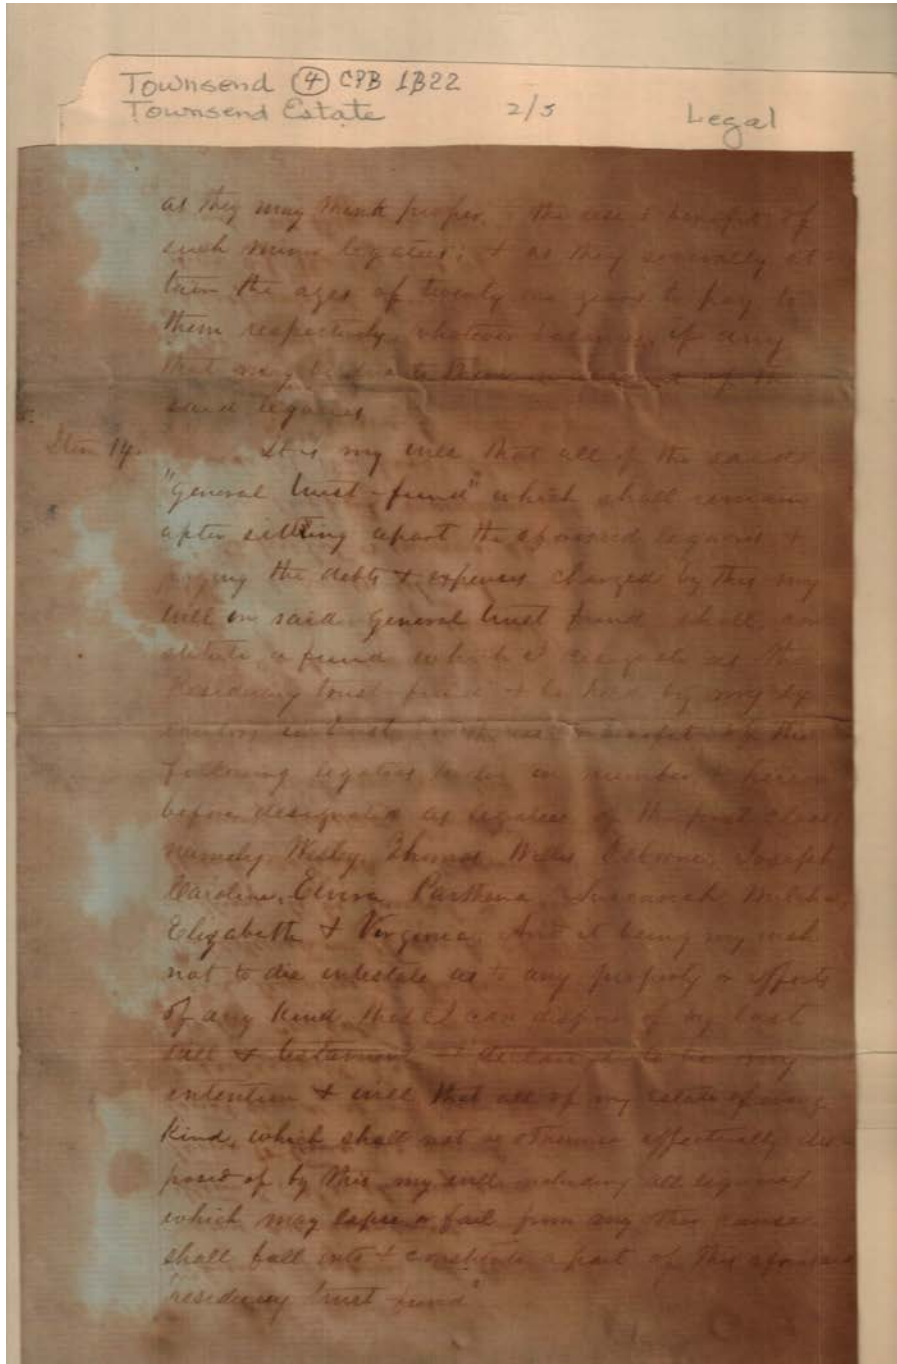 Townsend (4) CPB 1B22
Townsend Estate 2/5 Legal
as they may think proper. the use & benefit of
such minor legatees; & as they severally at-
tain the ages of twenty one years to pay to
them respectively whatever balance, if any
that may be due to them of the
said legacies
Item 14. It is my will that all of the said
"General trust-fund" which shall remain
after setting apart the aforesaid legacies &
paying the debts & expenses charged by this my
will on said General trust fund shall con
stitute a fund which I designate as the
Residuary trust fund & be held by my ex
ecutors in trust for the use & benefit of the
following legatees in number & herein
before designated as legatees of the first class
namely, Wesley, Thomas, Willis, Osborne, Joseph
Caroline, Elvira, Parthena, Susannah, Milcha,
Elizabeth & Virginia. And it being my wish
not to die intestate as to any property or effects
of any kind that I can dispose of by last
will & testament I declare it to be my
intention & will that all of my estate of every
kind, which shall not be otherwise effectually dis-
posed of by this my will including all legacies
which may lapse or fail from any other cause
shall fall into & constitute a part of this aforesaid
"residuary trust-fund"